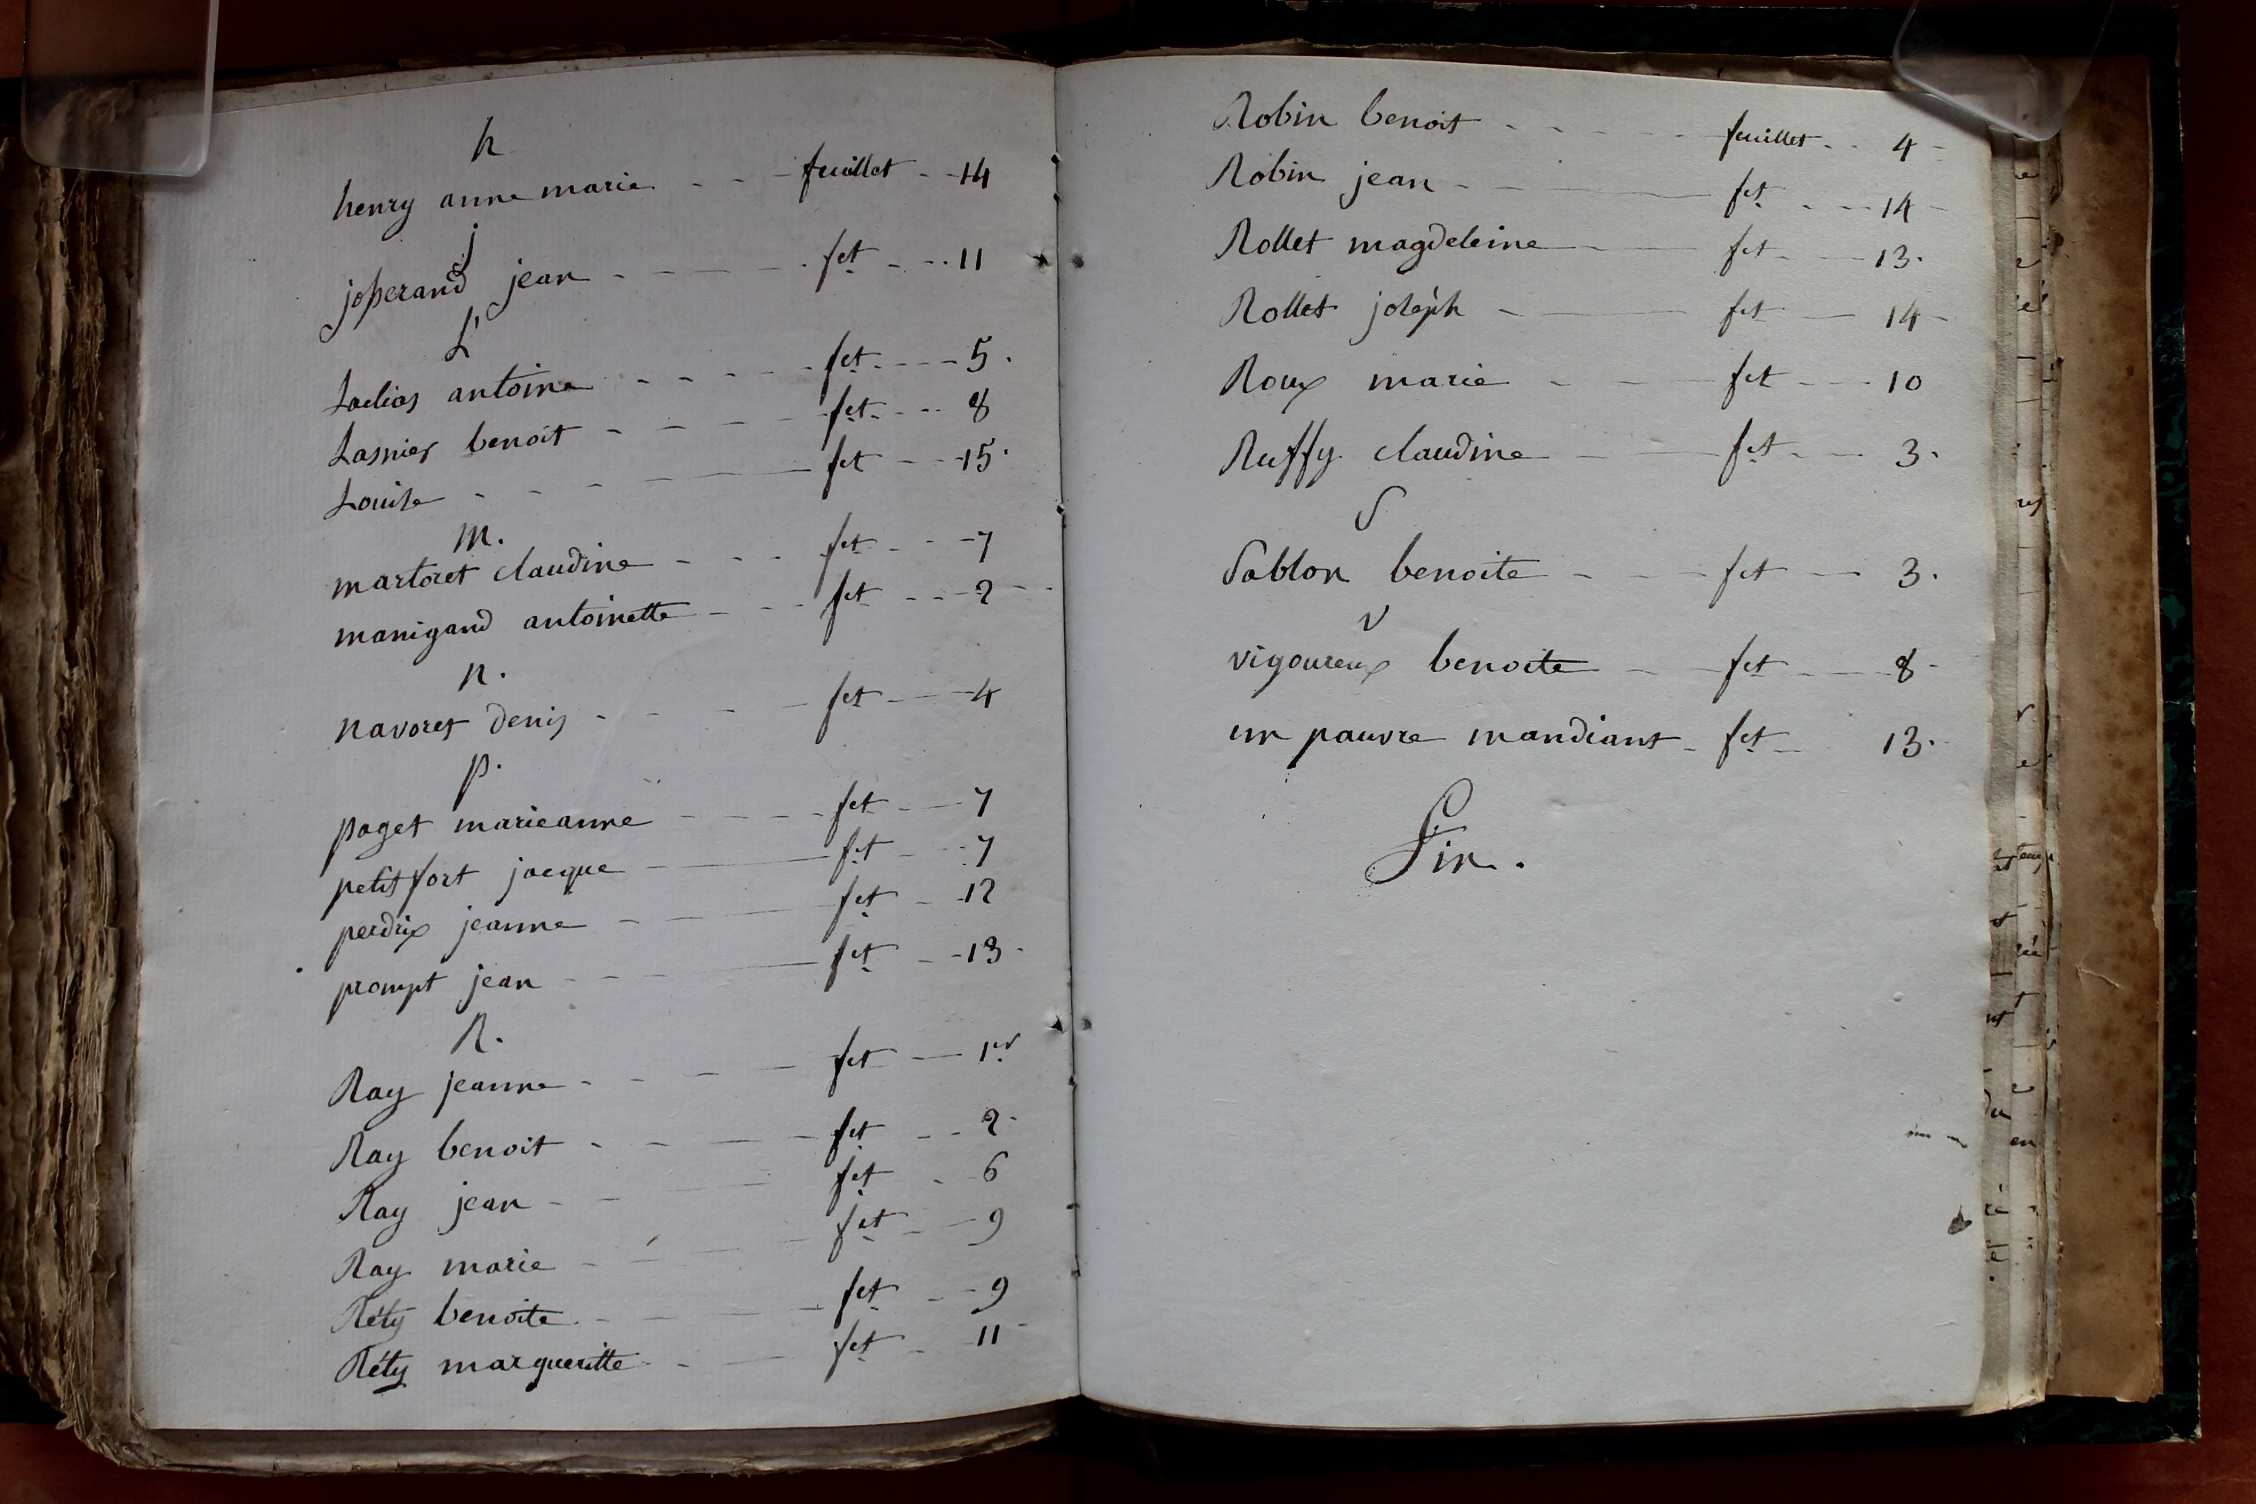 h
henry anne marie - - - feuillet - - 14
j
josserand jean - - - - - fet - - - 11
L
Laclias antoine - - - - - fet - - - 5.
Lasnier benoit - - - - - fet - - - 8
Louise - - - - - fet - - - 15.
m.
martoret claudine - - - fet - - - 7
manigand antoinette - - - fet - - - 2
n.
navoret denis - - - - - fet - - - 4
p.
paget marieanne - - - - fet - - - 7
petitfort jacque - - - fet - - - 7
perdrix jeanne - - - - fet - - 12
prompt jean - - - - fet - - 13.
R.
Ray jeanne - - - - - fet - - 1er
Ray benoit - - - - - fet - - 2.
Ray jean - - - fet - - 6
Ray marie - - - - fet - - 9
Réty benoite - - - - fet - - 9
Réty margueritte - - - fet - - 11
Robin benoit - - - - - feuillet - - 4
Robin jean - - - fet - - - 14
Rollet magdeleine - - - fet - - - 13.
Rollet joseph - - - fet - - 14
Roux marie - - - fet - - - 10
Ruffy claudine - - - fet - - - 3.
S
Sablon benoite - - - fet - - 3.
v
vigoureux benoite - - - fet - - - 8
un pauvre mandiant - fet - - 13.
Fin.